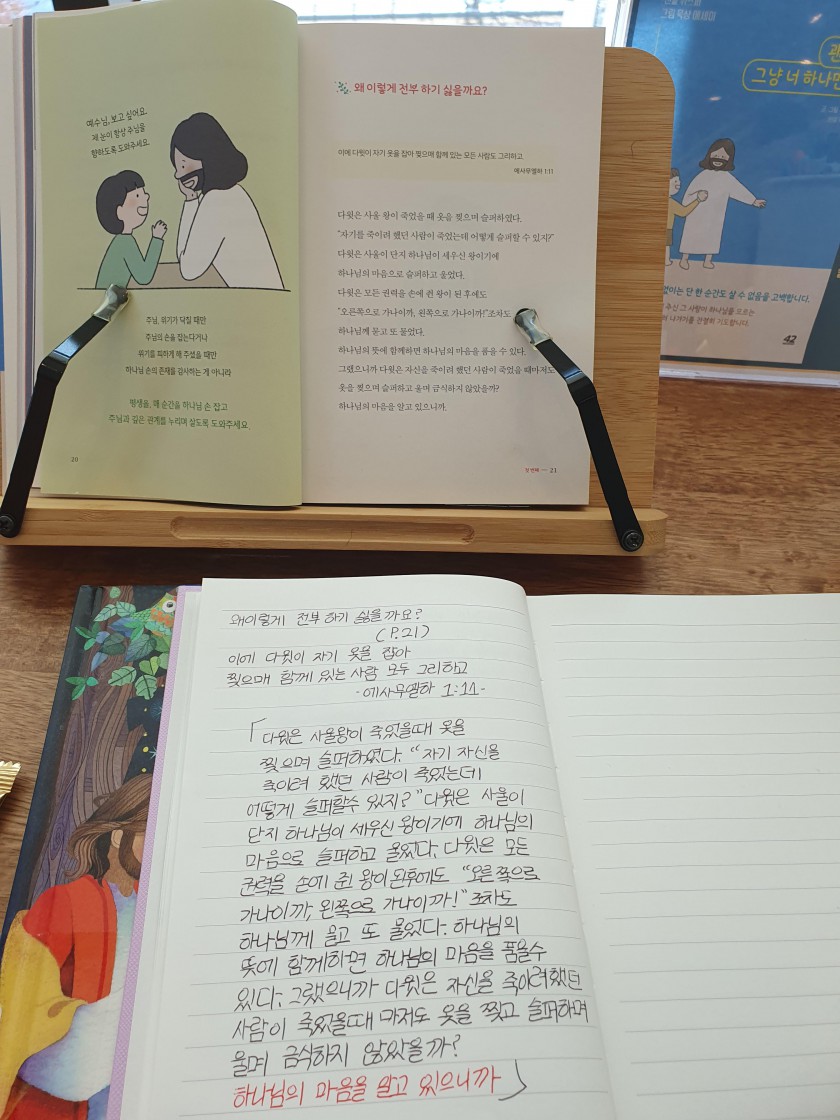 예수님, 보고 싶어요.
제 눈이 항상 주님을
향하도록 도와주세요.
주님, 위기가 닥칠 때만
주님의 손을 잡는다거나
위기를 피하게 해 주셨을 때만
하나님 손의 존재를 감사하는 게 아니라
평생을, 매 순간을 하나님 손 잡고
주님과 깊은 관계를 누리며 살도록 도와주세요.
20
왜 이렇게 전부 하기 싫을까요?
이에 다윗이 자기 옷을 잡아 찢으매 함께 있는 모든 사람도 그리하고
에사무엘하 1:11
다윗은 사울 왕이 죽었을 때 옷을 찢으며 슬퍼하였다.
"자기를 죽이려 했던 사람이 죽었는데 어떻게 슬퍼할 수 있지?"
다윗은 사울이 단지 하나님이 세우신 왕이기에
하나님의 마음으로 슬퍼하고 울었다.
다윗은 모든 권력을 손에 쥔 왕이 된 후에도
"오른쪽으로 가나이까, 왼쪽으로 가나이까!"조차도
하나님께 묻고 또 물었다.
하나님의 뜻에 함께하면 하나님의 마음을 품을 수 있다.
그랬으니까 다윗은 자신을 죽이려 했던 사람이 죽었을 때마저도
옷을 찢으며 슬퍼하고 울며 금식하지 않았을까?
하나님의 마음을 알고 있으니까.
21
그림 묵상 에세이
그냥 너 하나면
없이는 단 한 순간도 살 수 없음을 고백합니다.
주신 그 사랑이 하나님을 모르는
나가기를 간절히 기도합니다.
42
왜이렇게 전부 하기 싫을까요?
(P.21)
이에 다윗이 자기 옷을 잡아
찢으매 함께 있는 사람 모두 그리하고
-에사무엘하 1:11-
「다윗은 사울왕이 죽었을때 옷을
찢으며 슬퍼하였다. "자기 자신을
죽이려 했던 사람이 죽었는데
어떻게 슬퍼할수 있지?" 다윗은 사울이
단지 하나님이 세우신 왕이기에 하나님의
마음으로 슬퍼하고 울었다. 다윗은 모든
권력을 손에 쥔 왕이 된후에도 "오른쪽으로
가나이까, 왼쪽으로 가나이까!"조차도
하나님께 묻고 또 물었다. 하나님의
뜻에 함께하면 하나님의 마음을 품을수
있다. 그랬으니까 다윗은 자신을 죽이려했던
사람이 죽었을때 마저도 옷을 찢고 슬퍼하며
울며 금식하지 않았을까?
하나님의 마음을 알고 있으니까」